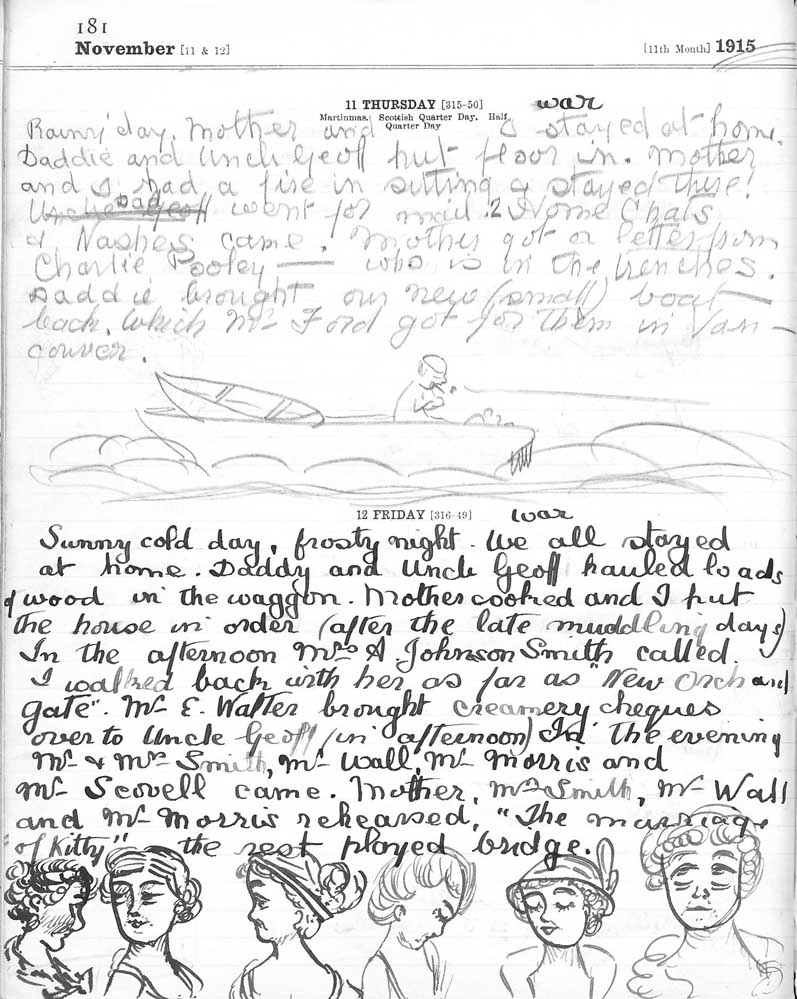 181
November [11 & 12] [11th Month] 1915
11 THURSDAY [315-50] war
Martinmas. Scottish Quarter Day. Half
Quarter Day
Rainy day. Mother and I stayed at home.
Daddie and Uncle Geoff put floor in. Mother
and I had a fire in sitting & stayed there!
Uncle Geoff Dad went for mail. 2 Home Chats
& Nashes came. Mother got a letter from
Charlie Pooley — who is in the trenches.
Daddie brought our new (small) boat —
back, which Mr Ford got for them in Van-
couver.
12 FRIDAY [316-49] war
Sunny cold day, frosty night. We all stayed
at home. Daddy and Uncle Geoff hauled loads
of wood in the waggon. Mother cooked and I put
the house in order (after the late muddling days)
In the afternoon Mrs A Johnson Smith called.
I walked back with her as far as "New Orchard
gate". Mr E. Walter brought creamery cheques
over to Uncle Geoff (in afternoon) In the evening
Mr & Mrs Smith, Mr Wall, Mr Morris and
Mr Scovell came. Mother, Mrs Smith, Mr Wall
and Mr Morris rehearsed, "The marriage
of Kitty" the rest played bridge.